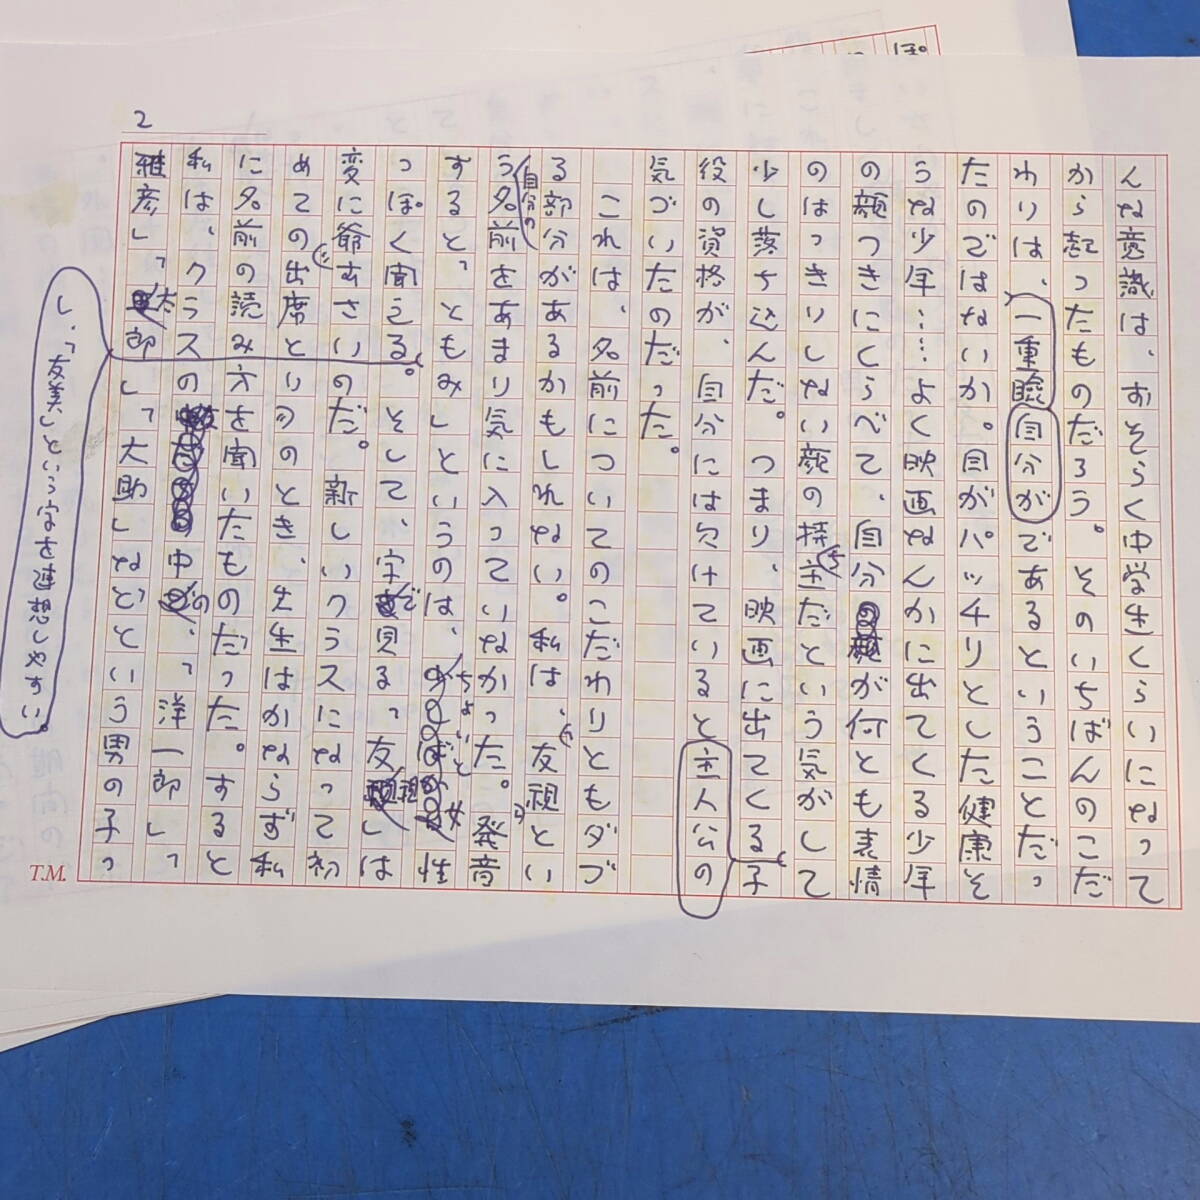 んな意識は、おそらく中学生くらいになって
から起ったものだろう。そのいちばんのこだ
わりは、一重瞼自分がであるということだっ
たのではないか。目がパッチリとした健康そ
うな少年……よく映画なんかに出てくる少年
の顔つきにくらべて、自分が何とも表情
のはっきりしない顔の持ち主だという気がして
少し落ち込んだ。つまり、映画に出てくる子
役の資格が、自分には欠けていると主人公の
気づいたのだった。
これは、名前についてのこだわりともダブ
る部分があるかもしれない。私は、「友視とい
う自分の名前をあまり気に入っていなかった。発音
すると、「ともみ」というのは、ちょいと女性
っぽく聞える。そして、字で見る「友視」は
変に爺むさいのだ。新しいクラスになって初
めての出席とりのとき、先生はかならず私
に名前の読み方を聞いたものだった。すると
私は、クラスの中の、「洋一郎」「
雅彦」「太郎」「大助」などという男の子っ
し、「友美」という字を連想しやすい。
2
T.M.
ぽ